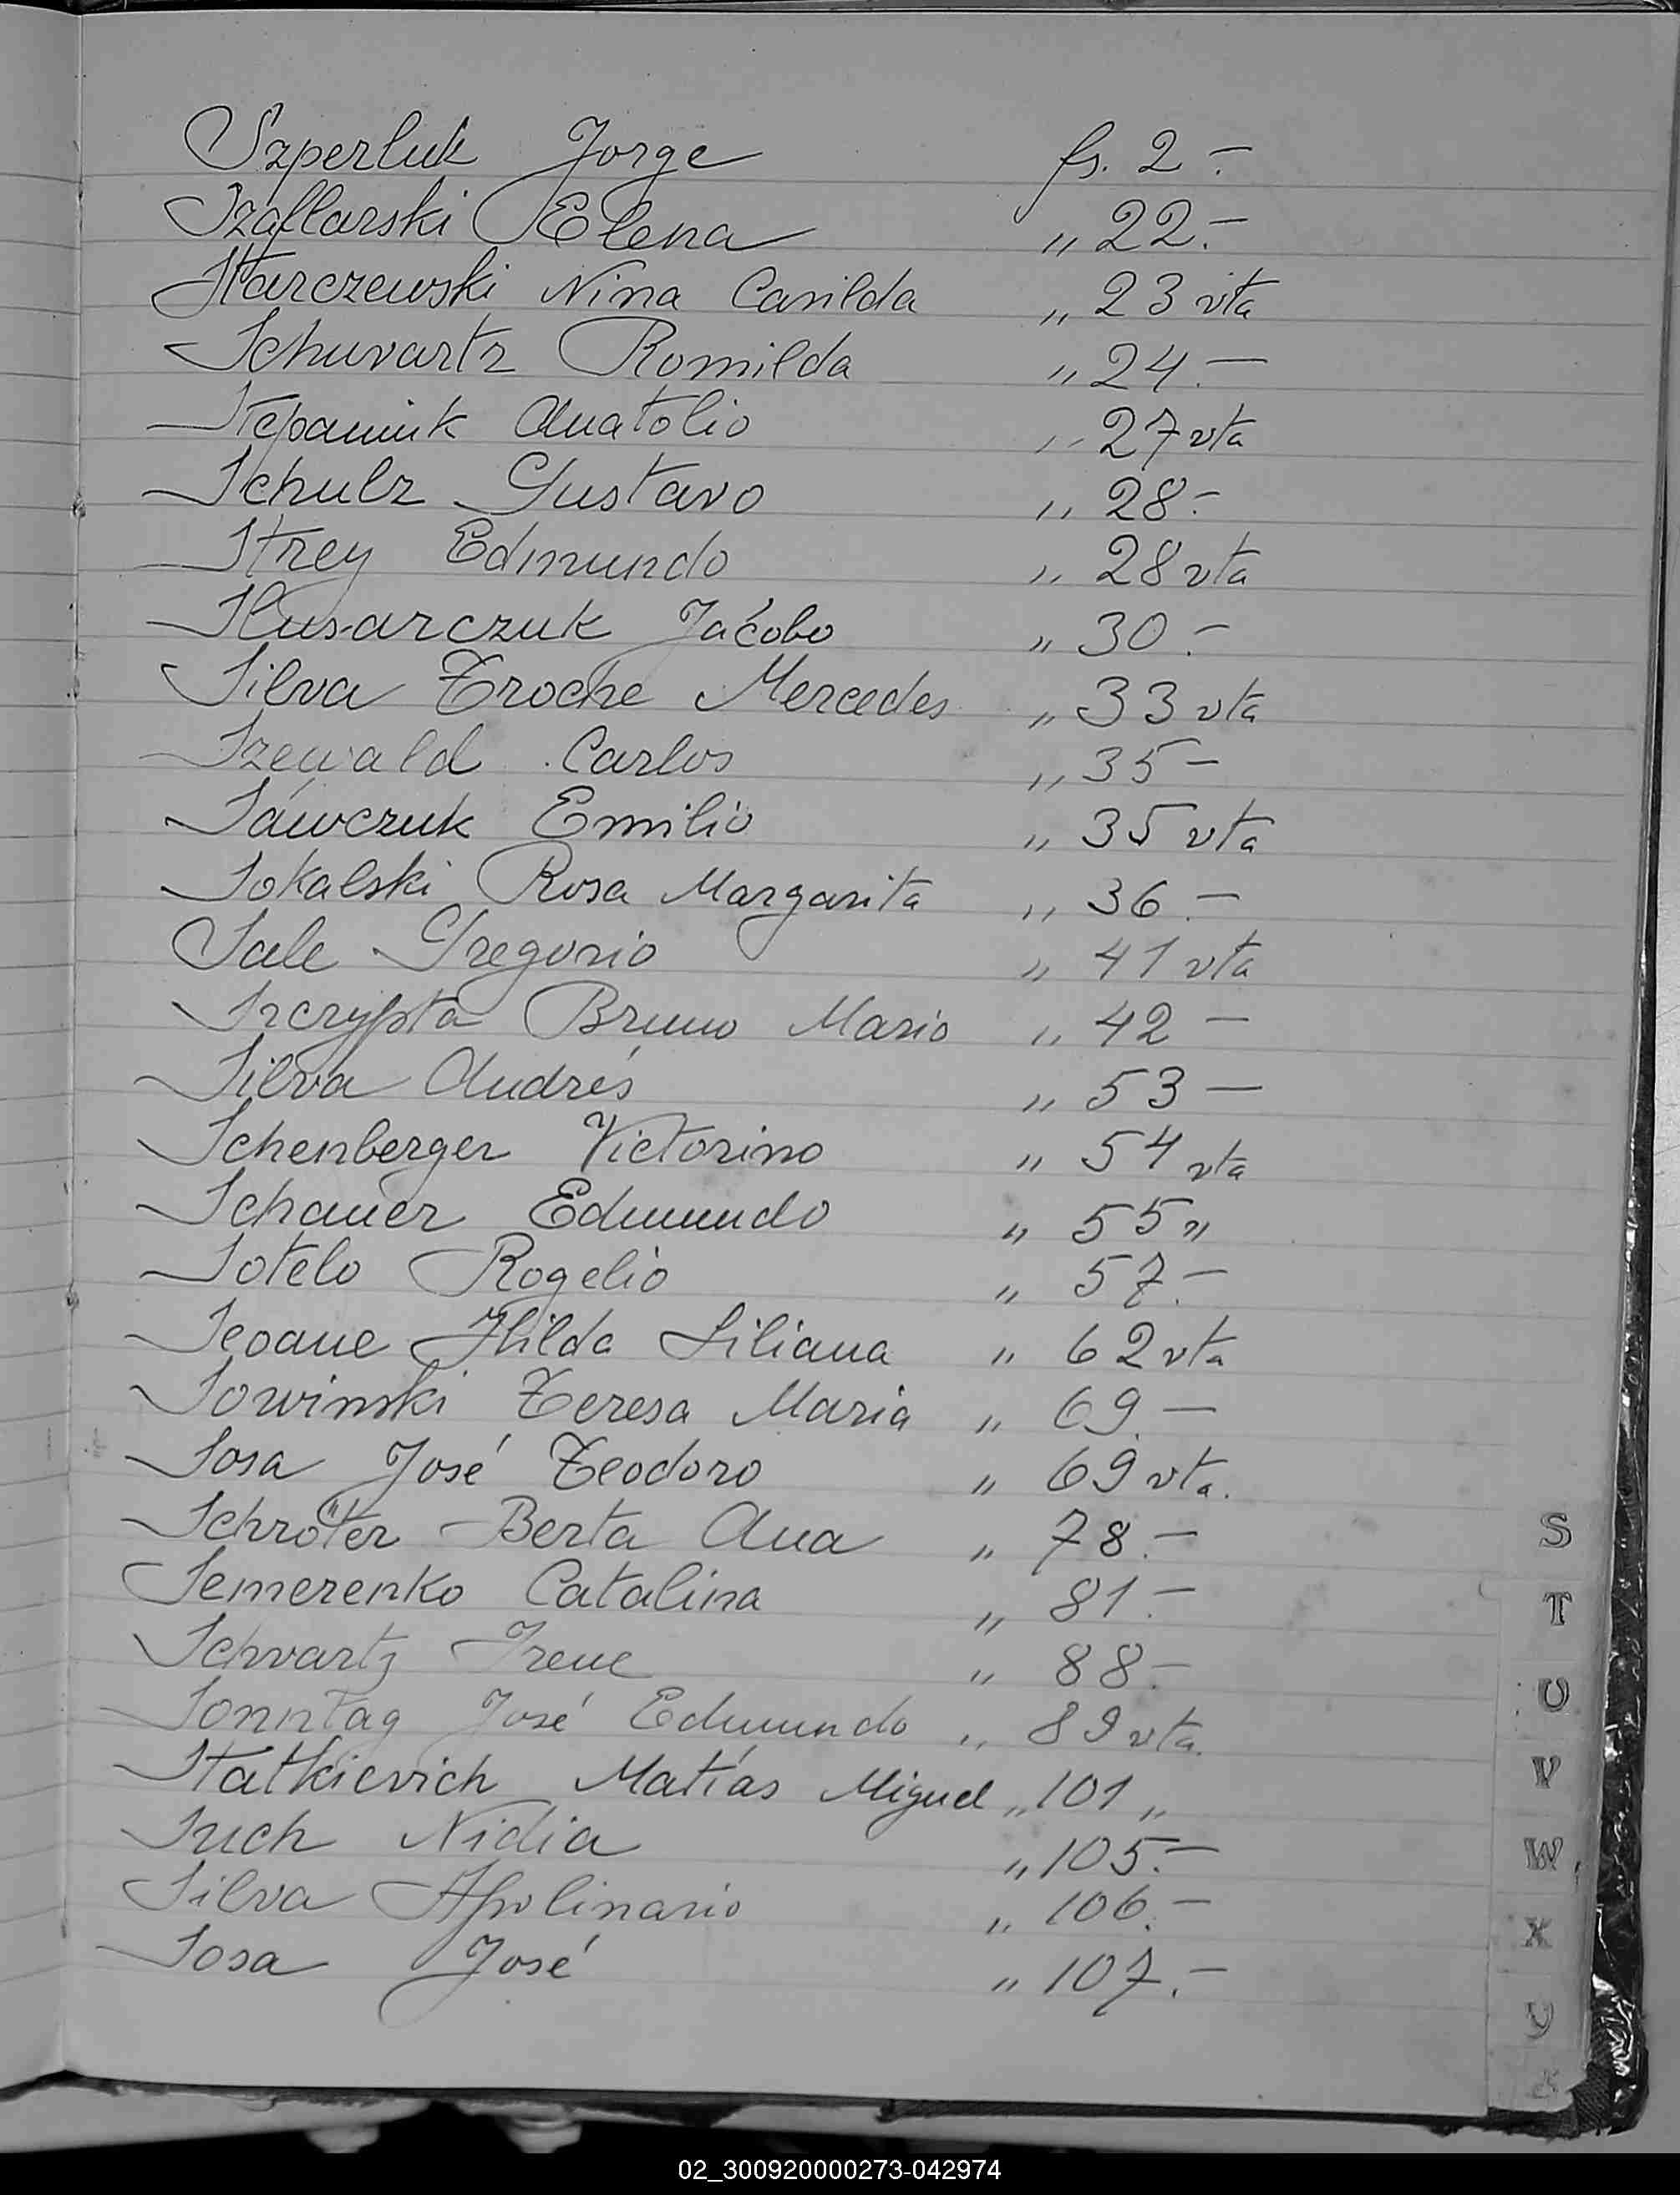 Szperluk Jorge fs. 2.-
Szaflarski Elena " 22.-
Starczewski Nina Casilda " 23 vta
Schuvartz Romilda " 24.-
Stepaniuk Anatolio " 27 vta
Schulz Gustavo " 28.-
Strey Edmundo " 28 vta
Slusarczuk Jacobo " 30.-
Silva Troche Mercedes " 33 vta
Szewald Carlos " 35-
Sawczuk Emilio " 35 vta
Sokalski Rosa Margarita " 36.-
Sale Gregorio " 41 vta
Szcrypta Bruno Mario " 42 -
Silva Andrés " 53 -
Schenberger Victorino " 54 vta
Schauer Edmundo " 55 "
Sotelo Rogelio " 57.-
Seoane Hilda Liliana " 62 vta
Sowinski Teresa Maria " 69.-
Sosa José Teodoro " 69 vta.
Schröter Berta Ana " 78.-
Semerenko Catalina " 81.-
Schvartz Irene " 88.-
Sonntag José Edmundo " 89 vta.
Statkievich Matías Miguel " 101 "
Such Nidia " 105.-
Silva Apolinario " 106.-
Sosa José " 107.-
S
T
U
V
W
X
Y
02_300920000273-042974